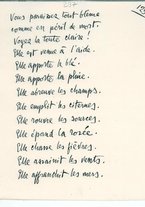 237
Vous paraissez tout blême
comme en péril de mort.
Voyez la toute claire !
Elle est venue à l'aide.
Elle apporte le blé.
Elle apporte la pluie.
Elle abreuve les champs.
Elle emplit les citernes.
Elle rouvre les sources.
Elle épand la rosée.
Elle chasse les fièvres.
Elle assainit les vents.
Elle affranchit les murs.